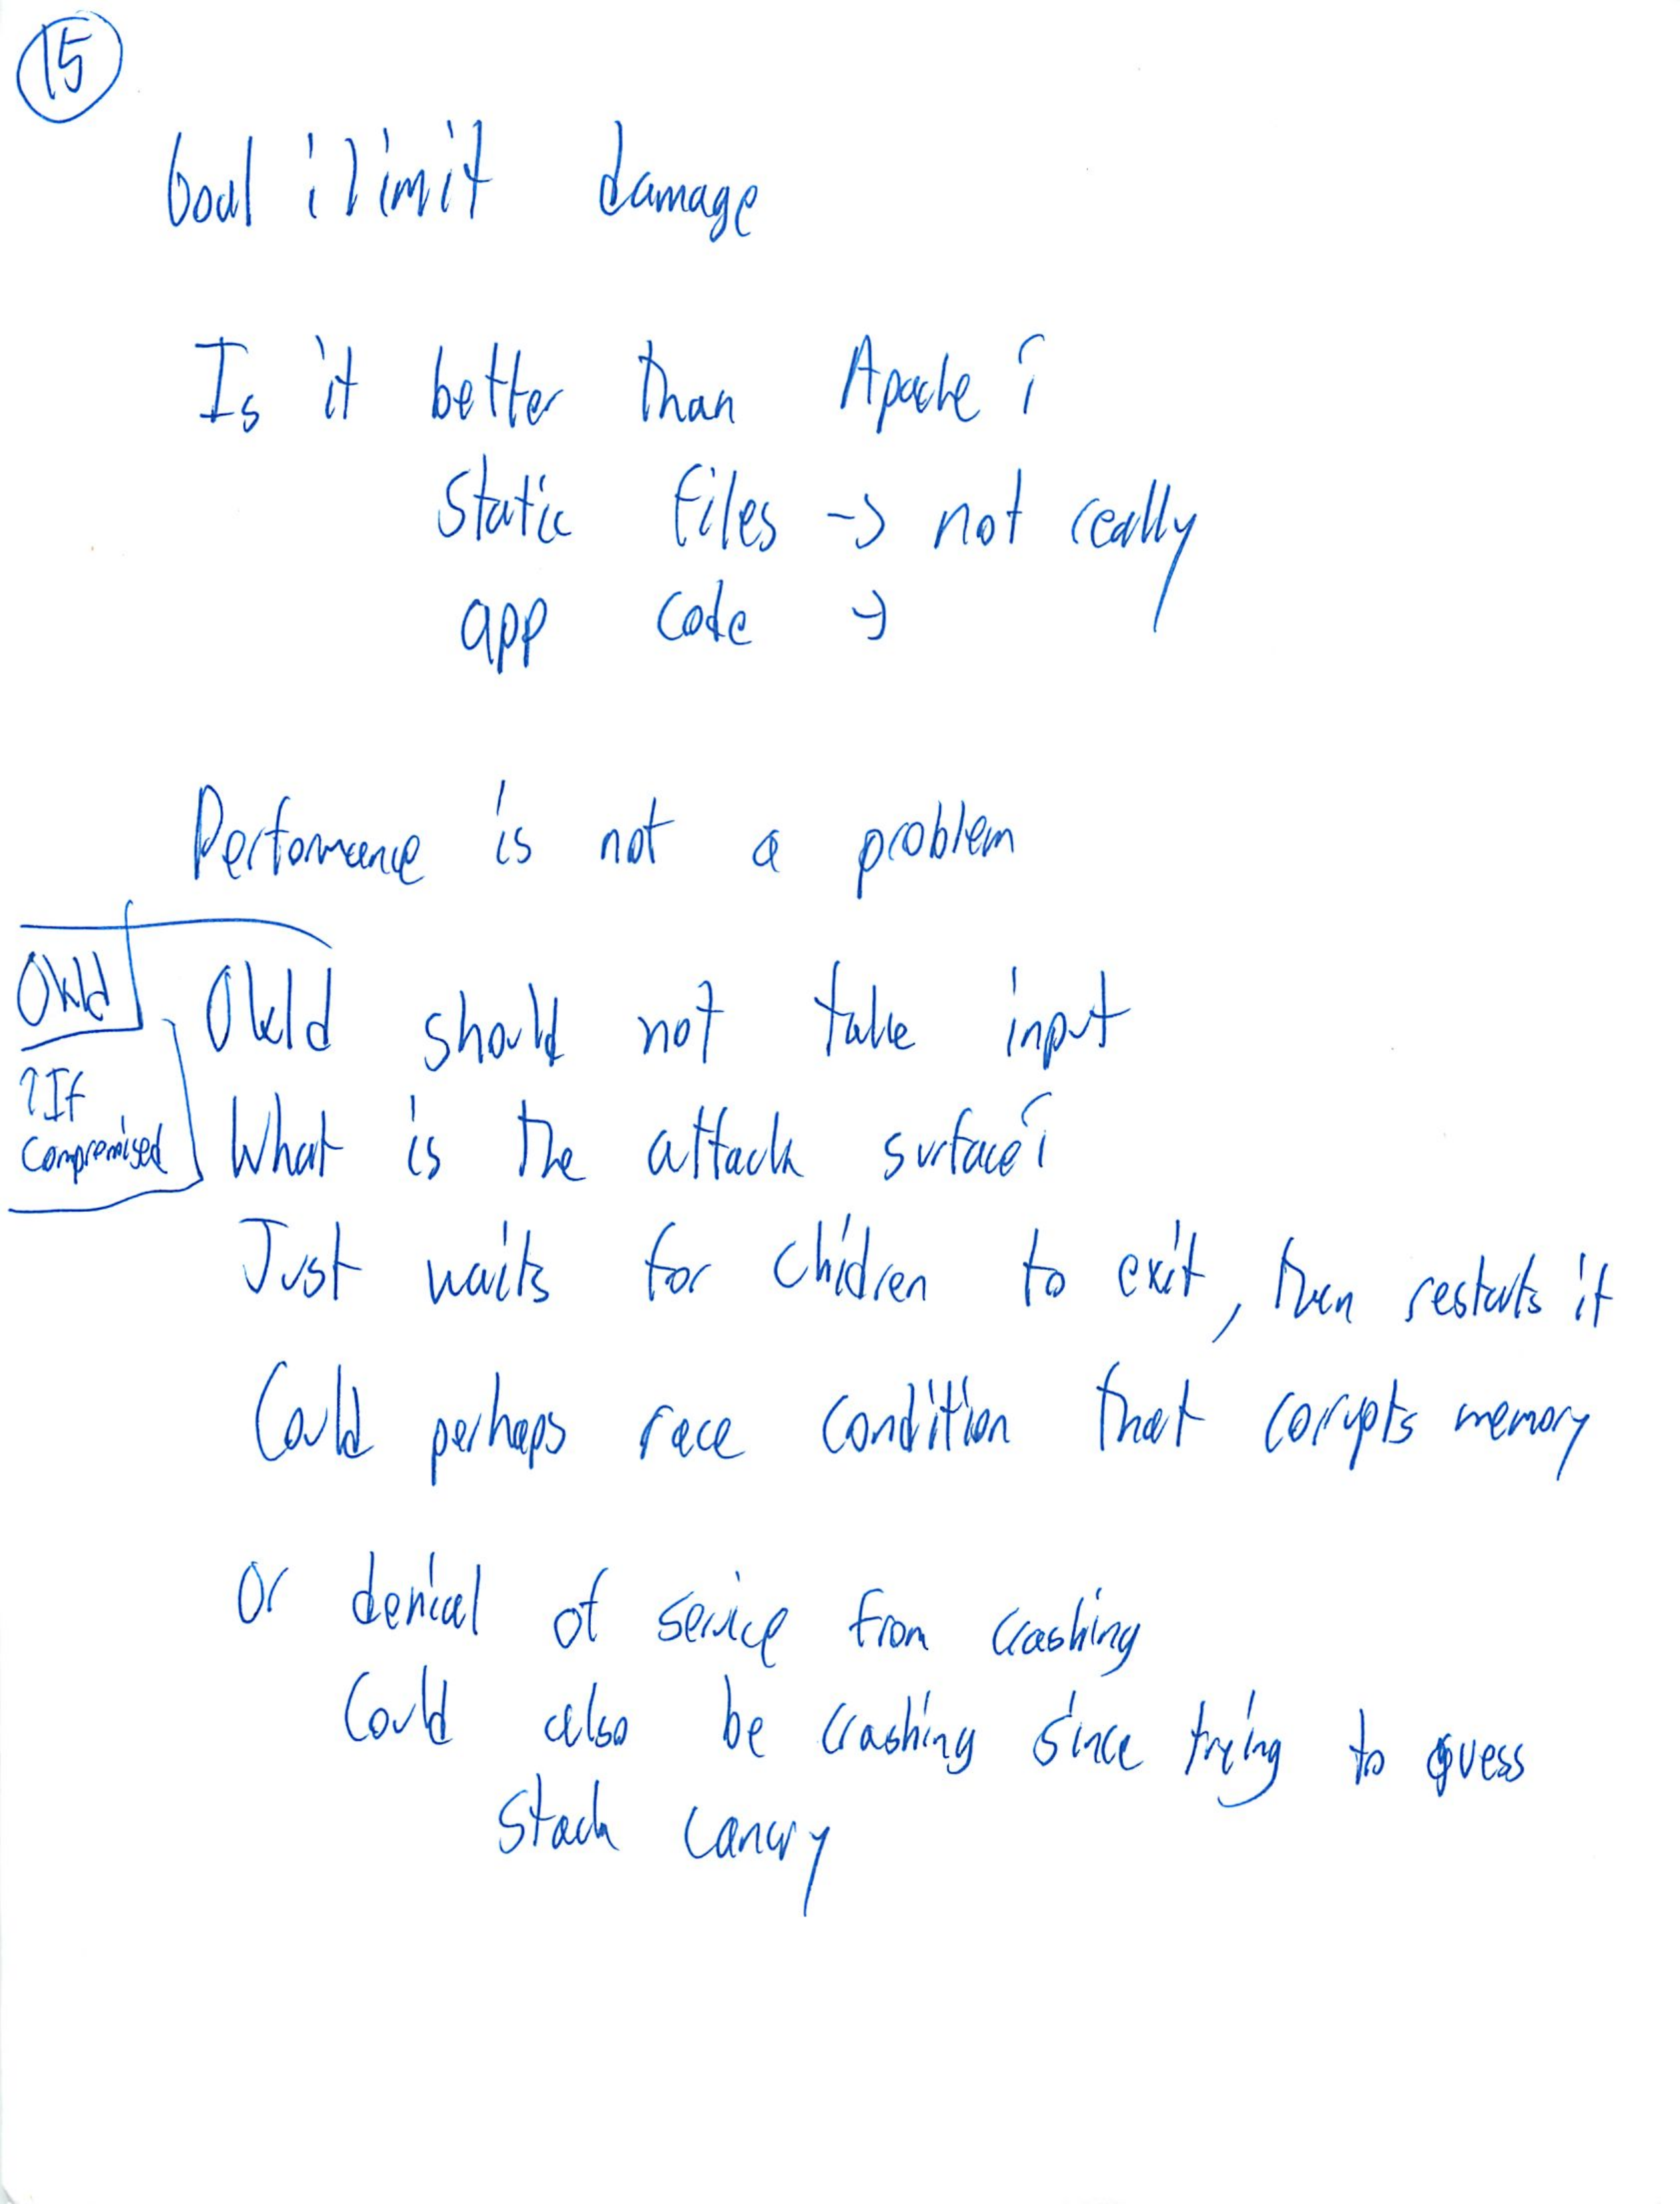 15
Goal: limit damage
Is it better than Apache?
Static files -> not really
app code ->
Performance is not a problem
OKld
↑If
compromised
OKld should not take input
What is the attack surface?
Just waits for children to exit, then restarts it
Could perhaps race condition that corrupts memory
Or denial of service from crashing
Could also be crashing since trying to guess
Stack canary